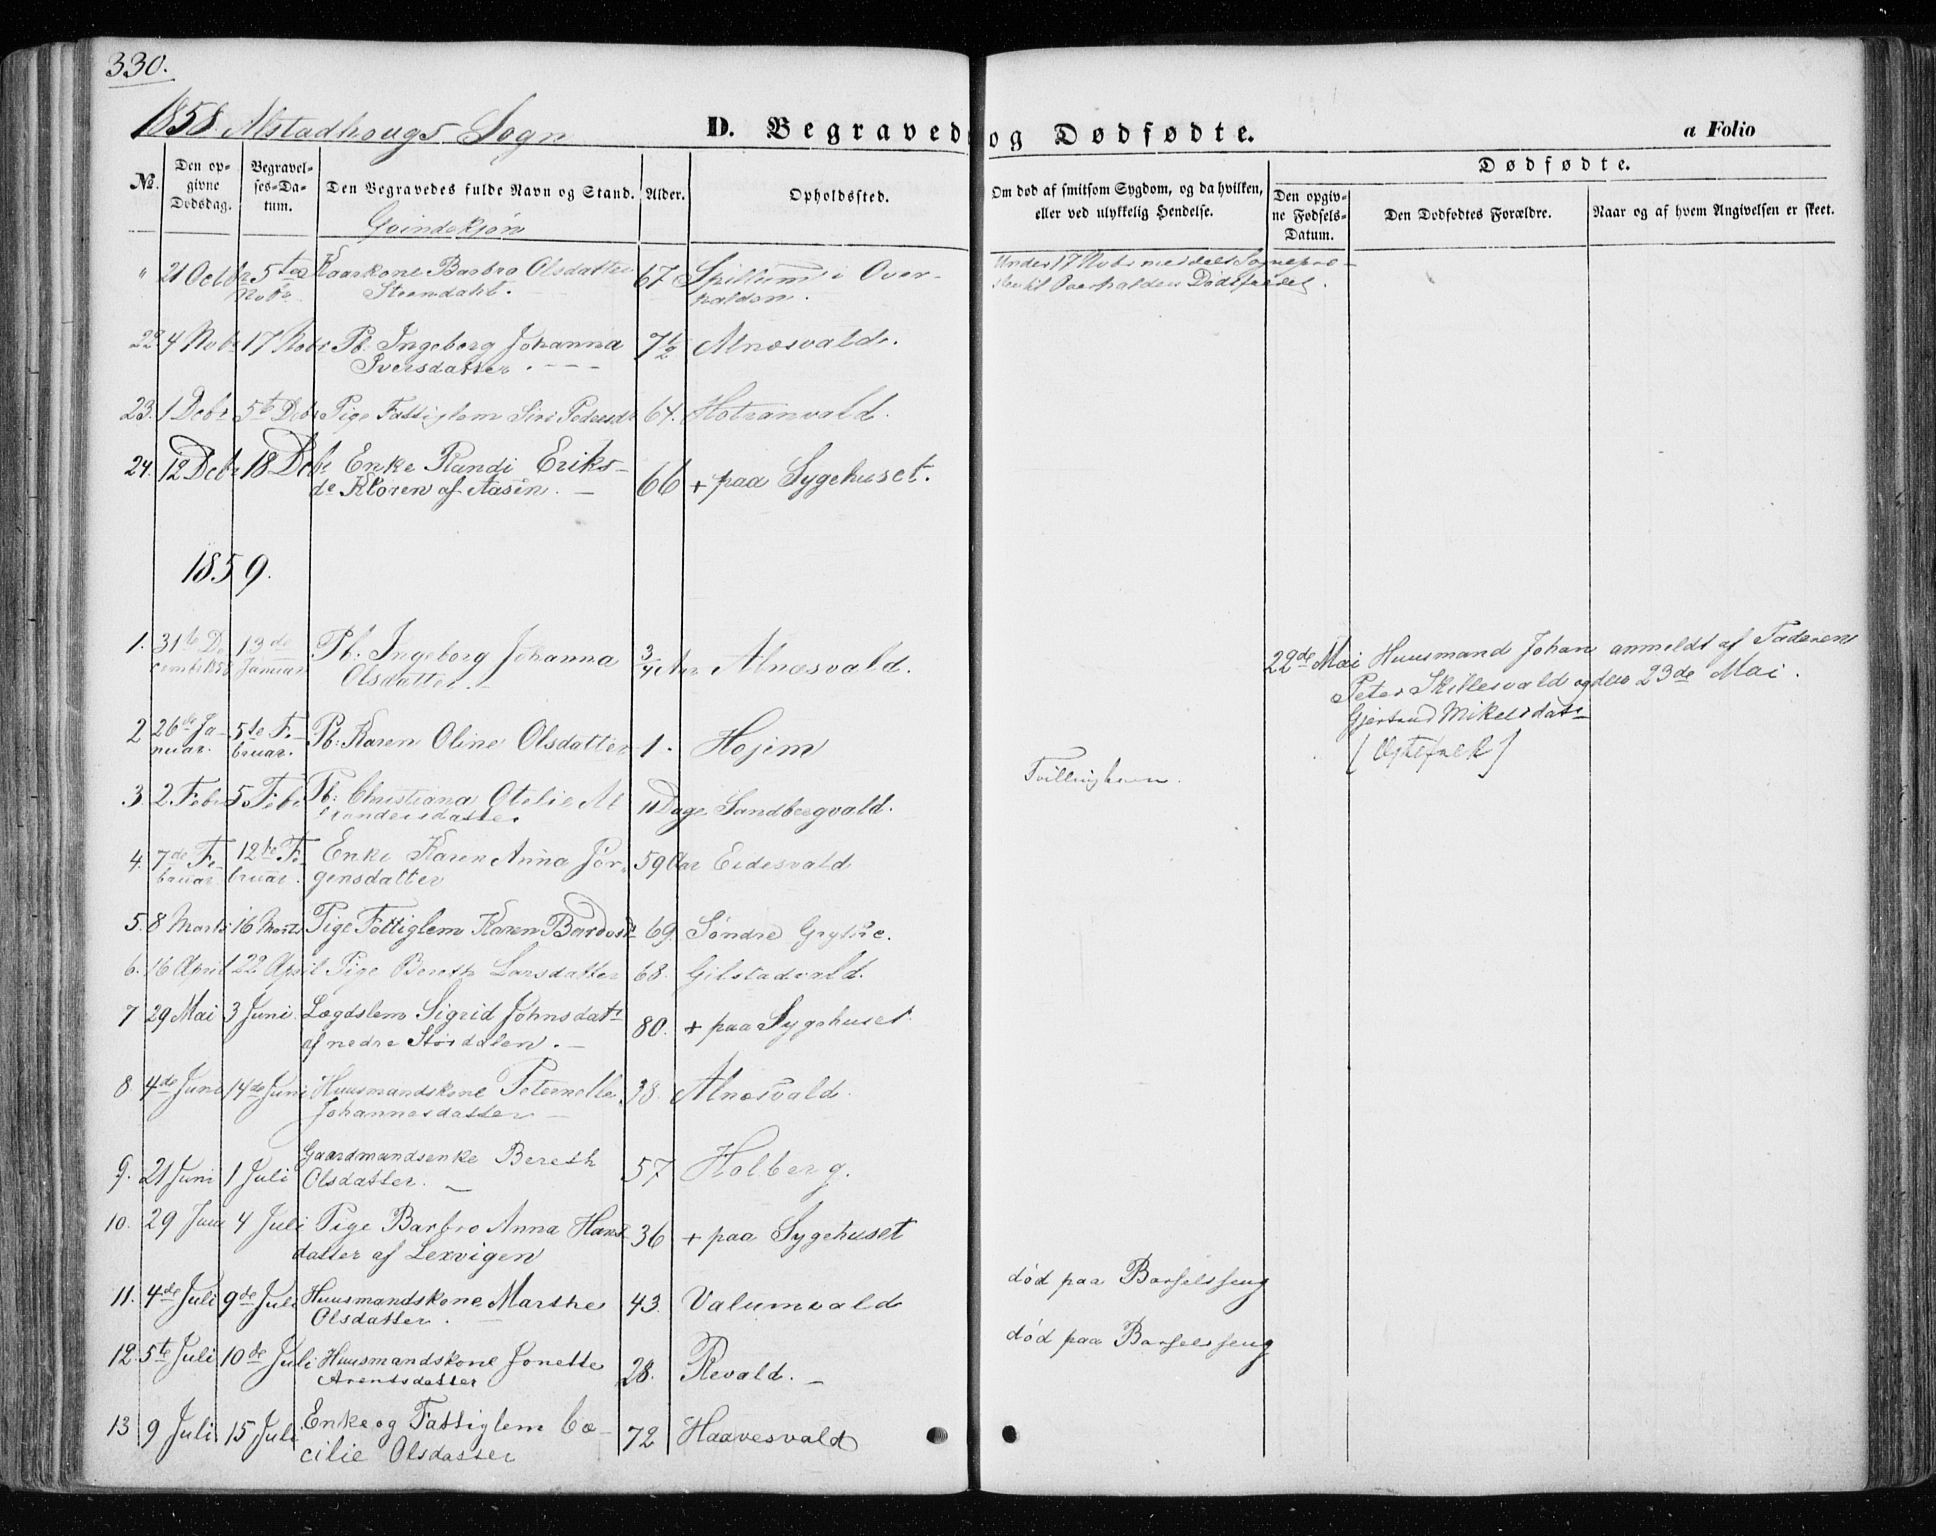 330.
1858. Alstadhougs Sogn
D. Begravede og Dødfødte.
a Folio
No.
Den opgivne Dødsdag.
Begravelses-Datum.
Den Begravedes fulde Navn og Stand.
Alder.
Opholdssted.
Om død af smitsom Sygdom, og da hvilken, eller ved ulykkelig Hendelse.
Dødfødte.
Den opgivne Fødsels-Datum.
Den Dødfødtes Forældre.
Naar og af hvem Angivelsen er skeet.
Qvindekjøn
" 21 Octbr 5te Kaarkone Barbro Olsdatter 67 Spillum i Over-
Nobr halden.
Under 17 Nobr meddelt Sognepræ-
sten til Overhalden
22 4 Nobr 17 Nobr Pb: Ingeborg Johanna 7½ Alnæsvald.
Iversdatter. - - -
23. 1 Debr 5te Debr Pige Fattiglem Siri Pedersdr 64. Hotranvald.
24. 12 Debr 18 Debr Enke Randi Eriks- 66 + paa Sygehuset.
dr Kloren af Aasen. -
1859.
1. 31te De 13de Pb. Ingeborg Johanna 3/4 Aar Alnæsvald.
cembr 1858 Januar Olsdatter. -
22de Mai Huusmand Johan anmeldt af Faderen
Peter Skillesvald og den 23de Mai.
Gjertrud Mikelsdatr
2 26de Ja- 5te Fe- Pb: Karen Oline Olsdatter 1. Hojem
nuar. bruar.
(Ægtefolk)
3 2 Febr 5 Febr Pb: Christiana Otelie Al 11 Dage Sandbergvald.
Tvillingbarn.
4. 7de Fe- 12te Fe- Enke Karen Anna Jør- 59 Aar Eidesvald
bruar bruar. gensdatter
5. 8 Marts 16 Marts Pige Fattiglem Karen Bardosdr 69. Søndre Grylste.
6. 16 April 22 April Pige Bereth Larsdatter 68. Gilstadvald.
7 29 Mai 3 Juni Lægdslem Sigrid Johnsdatr 80. + paa Sygehuset
af nedre Størdalen. -
8 4de Juni 14de Juni Huusmandskone Peternelle 38. Alnæsvald.
Johannesdatter -
9. 21 Juni 1 Juli Gaardmandsenke Bereth 57 Holberg.
Olsdatter. -
10. 29 Juni 4 Juli Pige Barbro Anna Hans 36 + paa Sygehuset
datter af Lexvigen
11. 4de Juli 9de Juli Huusmandskone Marthe 43. Valumvald
Olsdatter.
død paa Barselseng
12. 5te Juli 10de Juli Huusmandskone Jonette 28. Revald. -
Arentsdatter
død paa Barselseng
13 9 Juli 15 Juli Enke og Fattiglem Cæ- 72 Haavesvald
cilie Olsdatter